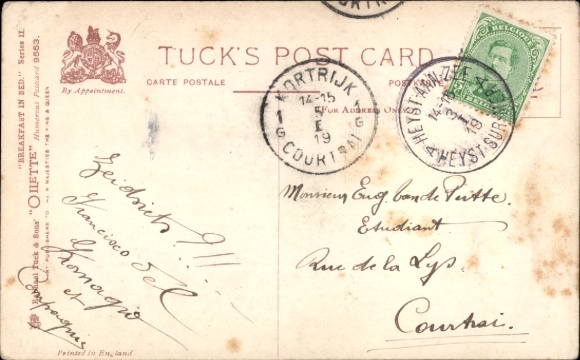 TUCK'S POST CARD
CARTE POSTALE
(FOR ADDRESS ONLY
By Appointment.
"BREAKFAST IN BED." Series II.
Humorous Postcard 9553.
"OILETTE"
Raphael Tuck & Sons'
ART PUBLISHERS TO THEIR MAJESTIES THE KING & QUEEN
Printed in England
KORTRIJK
14-15
5
I
19
1 G
1 G
COURTRAI
COURTRAI
HEYST-AAN-ZEE
14-
19
HEYST-SUR-
BELGIQUE
Francisco del
Romagio
et
Monsieur Eug. van de Putte.
Etudiant
Rue de la Lys.
Courtrai.